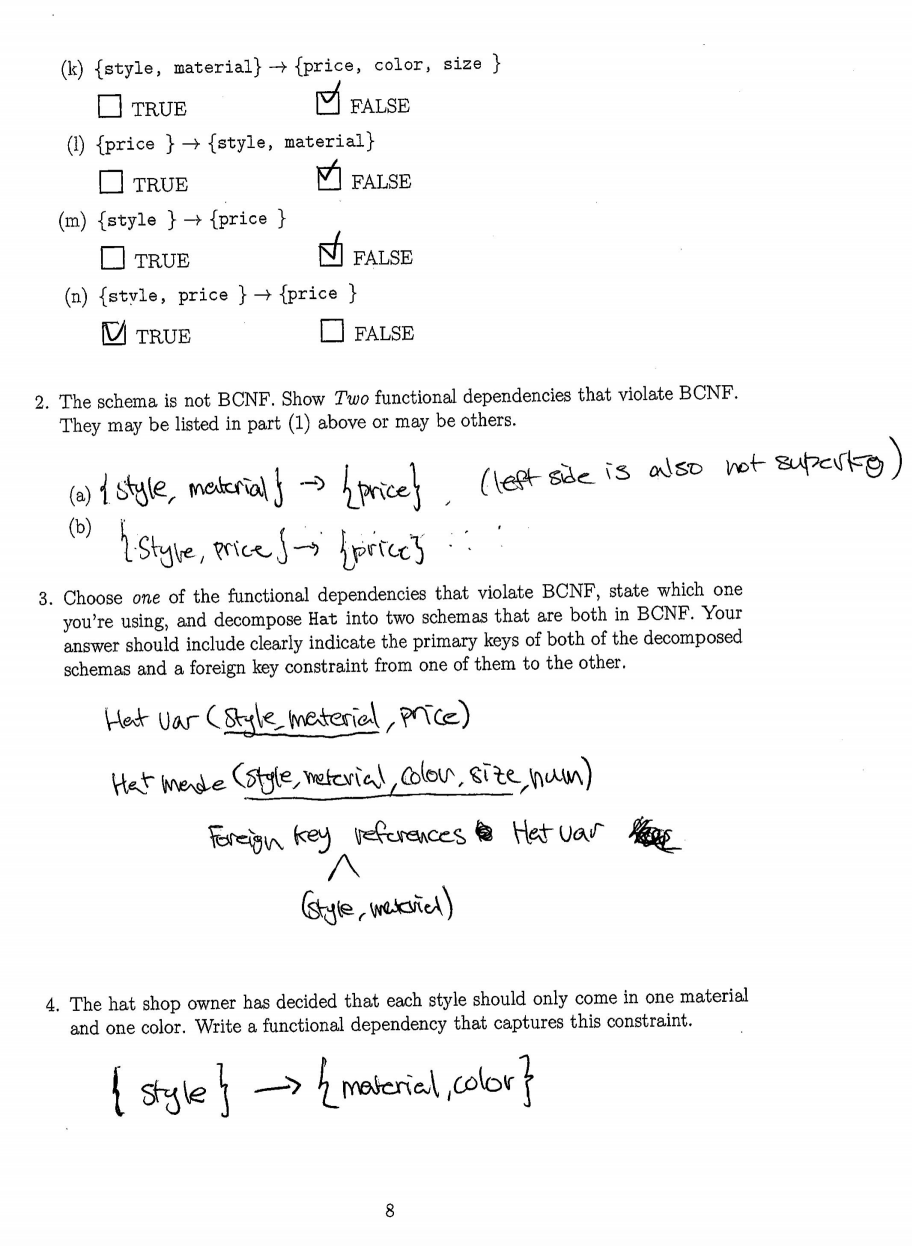 (k) {style, material} → {price, color, size }
TRUE FALSE
(l) {price } → {style, material}
TRUE FALSE
(m) {style } → {price }
TRUE FALSE
(n) {style, price } → {price }
TRUE FALSE
2. The schema is not BCNF. Show Two functional dependencies that violate BCNF.
They may be listed in part (1) above or may be others.
(a) {style, material} → {price}, (left side is also not superkey)
(b) {style, price} → {price}
3. Choose one of the functional dependencies that violate BCNF, state which one
you're using, and decompose Hat into two schemas that are both in BCNF. Your
answer should include clearly indicate the primary keys of both of the decomposed
schemas and a foreign key constraint from one of them to the other.
Hat Var (style, material, price)
Hat made (style, material, colour, size, num)
Foreign key references Hat Var
(style, material)
4. The hat shop owner has decided that each style should only come in one material
and one color. Write a functional dependency that captures this constraint.
{ style } → { material, color }
8